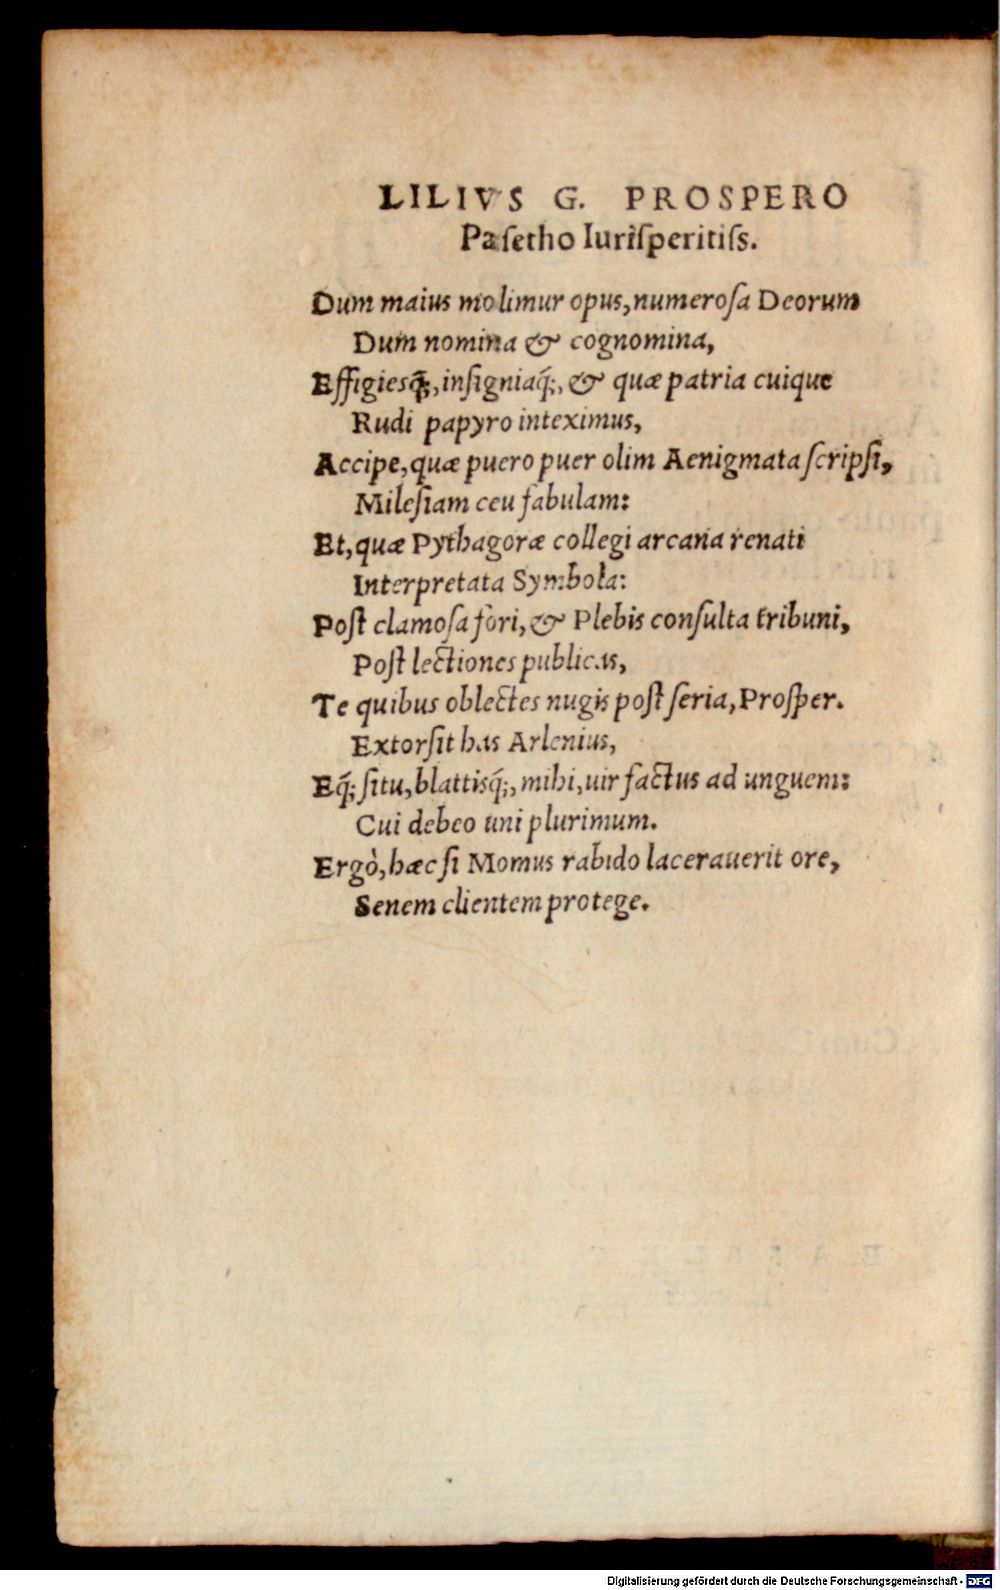 LILIVS G. PROSPERO
Pasetho Iuriſperitiſs.
Dum maius molimur opus, numeroſa Deorum
Dum nomina & cognomina,
Effigiesq́;, inſigniaq́;, & quæ patria cuique
Rudi papyro inteximus,
Accipe, quæ puero puer olim Aenigmata ſcripſi,
Mileſiam ceu fabulam:
Et, quæ Pythagoræ collegi arcana renati
Interpretata Symbola:
Poſt clamoſa fori, & Plebis conſulta tribuni,
Poſt lectiones publicas,
Te quibus oblectes nugis poſt ſeria, Proſper.
Extorſit has Arlenius,
Eq́; ſitu, blattisq́;, mihi, uir factus ad unguem:
Cui debeo uni plurimum.
Ergò, hæc ſi Momus rabido lacerauerit ore,
Senem clientem protege.
Digitalisierung gefördert durch die Deutsche Forschungsgemeinschaft - DFG